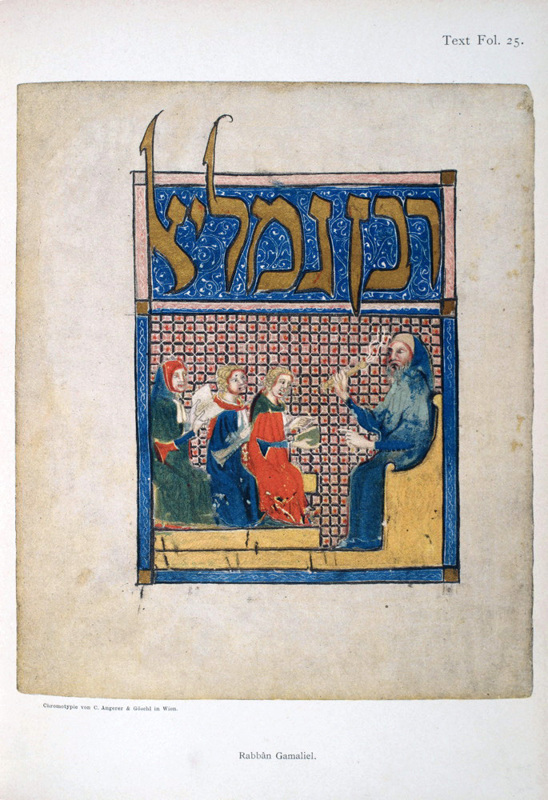 Text Fol. 25.
רבן גמליאל
Chromotypie von C. Angerer & Göschl in Wien.
Rabbân Gamaliel.